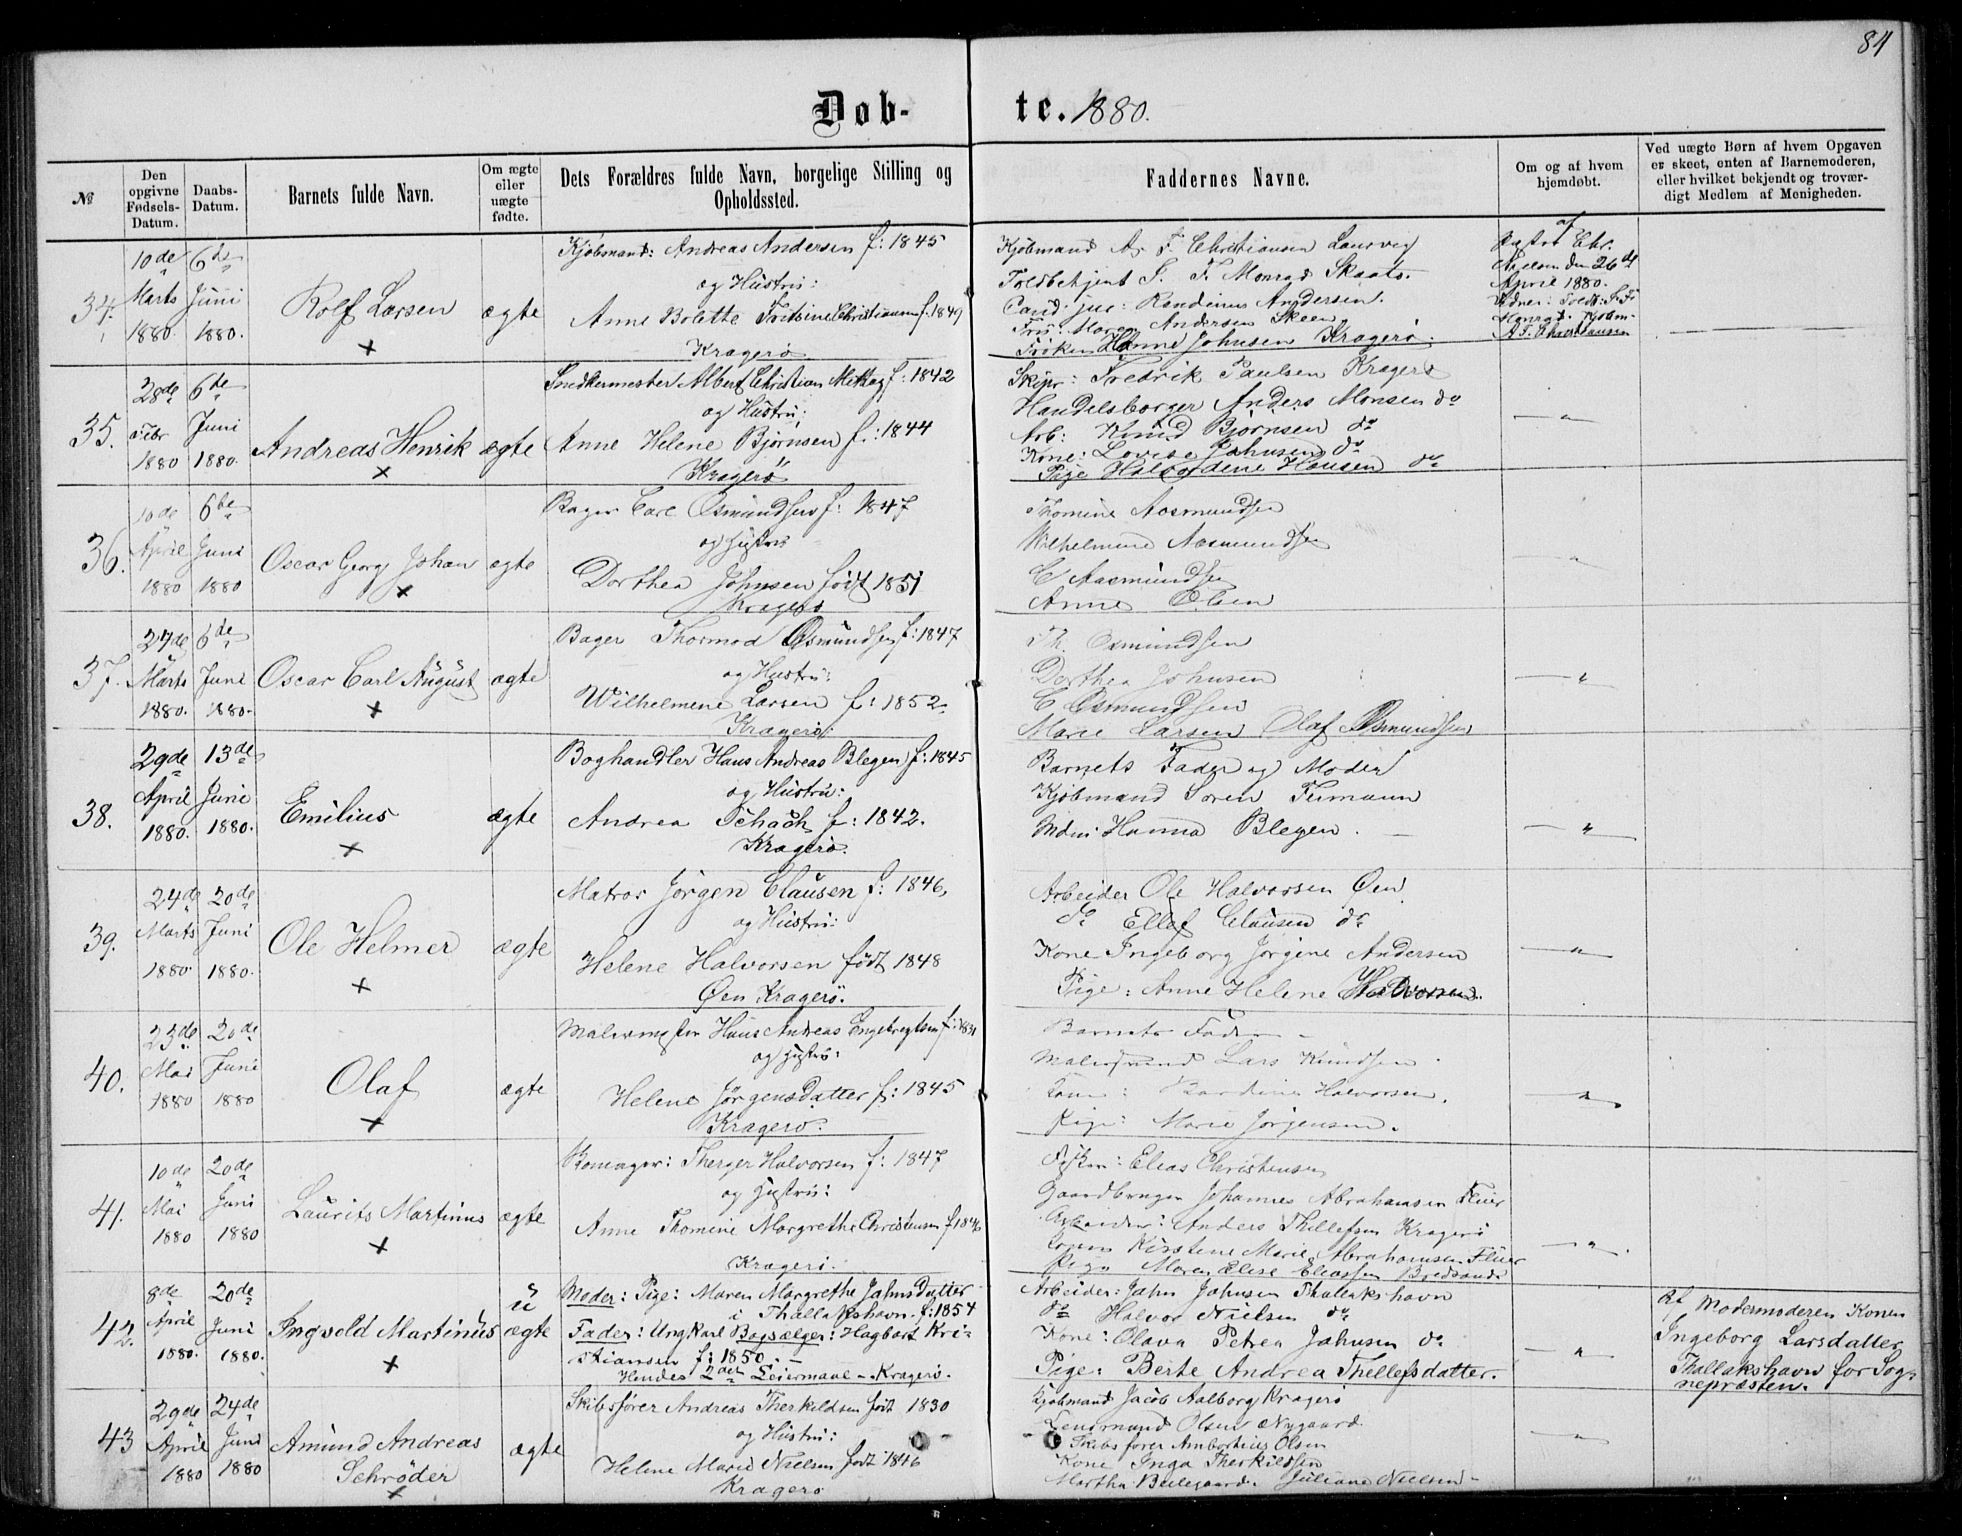 84
Døb-
te. 1880.
№
Den opgivne Fødsels-Datum.
Daabs-Datum.
Barnets fulde Navn.
Om ægte eller uægte fødte.
Dets Forældres fulde Navn, borgelige Stilling og Opholdssted.
Faddernes Navne.
Om og af hvem hjemdøbt.
Ved uægte Børn af hvem Opgaven er skeet, enten af Barnemoderen, eller hvilket bekjendt og troværdigt Medlem af Menigheden.
34.
10de Marts 1880.
6te Juni 1880.
Rolf Larsen
ægte
Kjøbmand: Andreas Andersen f: 1845
og Hustru:
Anne Bolette Fritsine Christiansen f. 1849
Kragerö
Kjøbmand A. F. Christiansen Laurvig
Toldbetjent S. F. Monrad Skaatø.
Cand. jur: Randinius Andersen.
Frú: Maren Andersen Skeen
Frøken Hanne Johnsen Kragerö.
af
Pastor Chr.
Nielsen den 26de
April 1880.
Vidner: Toldb: S. F.
Monrad. Kjøbm.
A. F. Christiansen
35.
28de Febr 1880
6te Juni 1880.
Andreas Henrik
ægte
Snedkermester Albert Christian f: 1842
og Hustru:
Anne Helene Bjørnsen f: 1844
Kragerö
Skipr: Fredrik Paulsen Kragerö
Handelsborger Anders Monsen do
Arb: Knud Bjørnsen do
Kone: Lovise Johnsen do
Pige Halvordine Hansen do
36.
10de April 1880
6te Juni 1880
Oscar Georg Johan
ægte
Bager Carl Osmundsen f: 1847
og Hustru
Dorthea Johnsen født 1851
Kragerö
Thomine Aasmundsen
Wilhelmine Aasmundsen
C Aasmundsen
Anne Olsen
37.
27de Marts 1880.
6te Juni 1880.
Oscar Carl August
ægte
Bager Thormod Osmundsen f: 1847
og Hustru:
Wilhelmene Larsen f: 1852
Kragerö.
Th. Osmundsen
Dorthea Johnsen
C Osmundsen
Marie Larsen Olaf Osmundsen
38.
29de April 1880.
13de Juni 1880.
Emilius
ægte
Boghandler Hans Andreas Blegen f: 1845
og Hustru:
Andrea Schach f: 1842.
Kragerö.
Barnets Fader og Moder
Kjøbmand Sören
Hanna Blegen.
39.
24de Marts 1880.
20de Juni 1880.
Ole Helmer
ægte
Matros Jörgen Clausen f: 1846,
og Hustru:
Helene Halvorsen født 1848
Øen Kragerö.
Arbeider Ole Halvorsen Øen
do Ellef Clausen do
Kone Ingeborg Jörgine Andersen
Pige: Anne Helene Halvorsen.
40.
23de Mai 1880
20de Juni 1880
Olaf
ægte
Malermester Hans Andreas Engebregtsen
og Hustru:
Helene Jørgensdatter f: 1845
Kragerö.
Barnets Fader
Malersvend Lars Knudsen
Kone: Halvorsen.
Pige: Marie Jørgensen.
41.
10de Mai 1880
20de Juni 1880
Laurits Martinius
ægte
Therger Halvorsen f: 1847
og Hustru:
Anne Thomine Margrethe Christensen f 1846
Kragerö.
Elias Christensen
Gaardbruger Johannes Abrahamsen
Arbeider: Anders Thellefsen Kragerö
Konen Kirstene Marie Abrahamsen
Pige Maren Elise Eliassen
42.
8de April 1880.
20de Juni 1880.
Ingvold Martinius
ú ægte
Moder: Pige: Maren Margrethe Jahnsdatter
i Thallakshavn. f: 1854
Fader: Ungkarl Bogsælger: Hagbart Kri-
stiansen f: 1850. -
Hendes 2det Leiermaal - Kragerö.
Arbeider: Jahn Jahnsen Thallakshavn
do Halvor Nielsen do
Kone: Olava Petrea Jahnsen do
Pige: Berte Andrea Thellefsdatter.
Af Modermoderen Konen
Ingeborg Larsdatter
Thallakshavn for Sog-
nepræsten.
43
29de April 1880
24de Juni 1880
Amund Andreas
Schröder
ægte
Skibsfører Andreas Therkildsen født 1830
og Hustru:
Helene Marie Nielsen født 1846
Kragerö
Kjøbmand Jacob Aalborg Kragerö
Olsen Nygaard
Skibsfører Ambortius Olsen
Kone Inga Therkildsen
Martha Juliane Nielsen